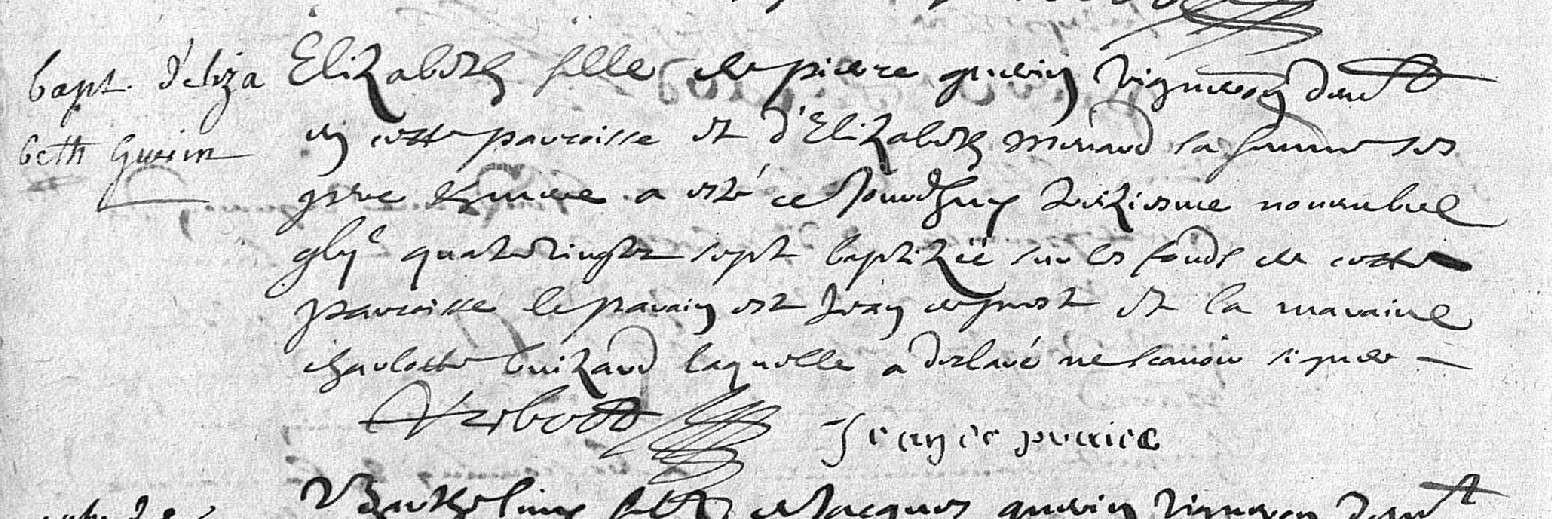 bapt. d'eliza
beth Guerin
Elizabeth fille de pierre guerin vigneron dem.t
en cette parroisse et d'Elizabeth menard sa femme ses
pere & mere a esté ce Jourdhuy troiziesme nouembre
gbj.c quatrevingts sept baptizèè sur les fonds de cette
parroisse le parain est Jean et la maraine
charlotte buizard laquelle a declaré ne scauoir signer
Jean
fille de Jacques guerin vigneron dem.t